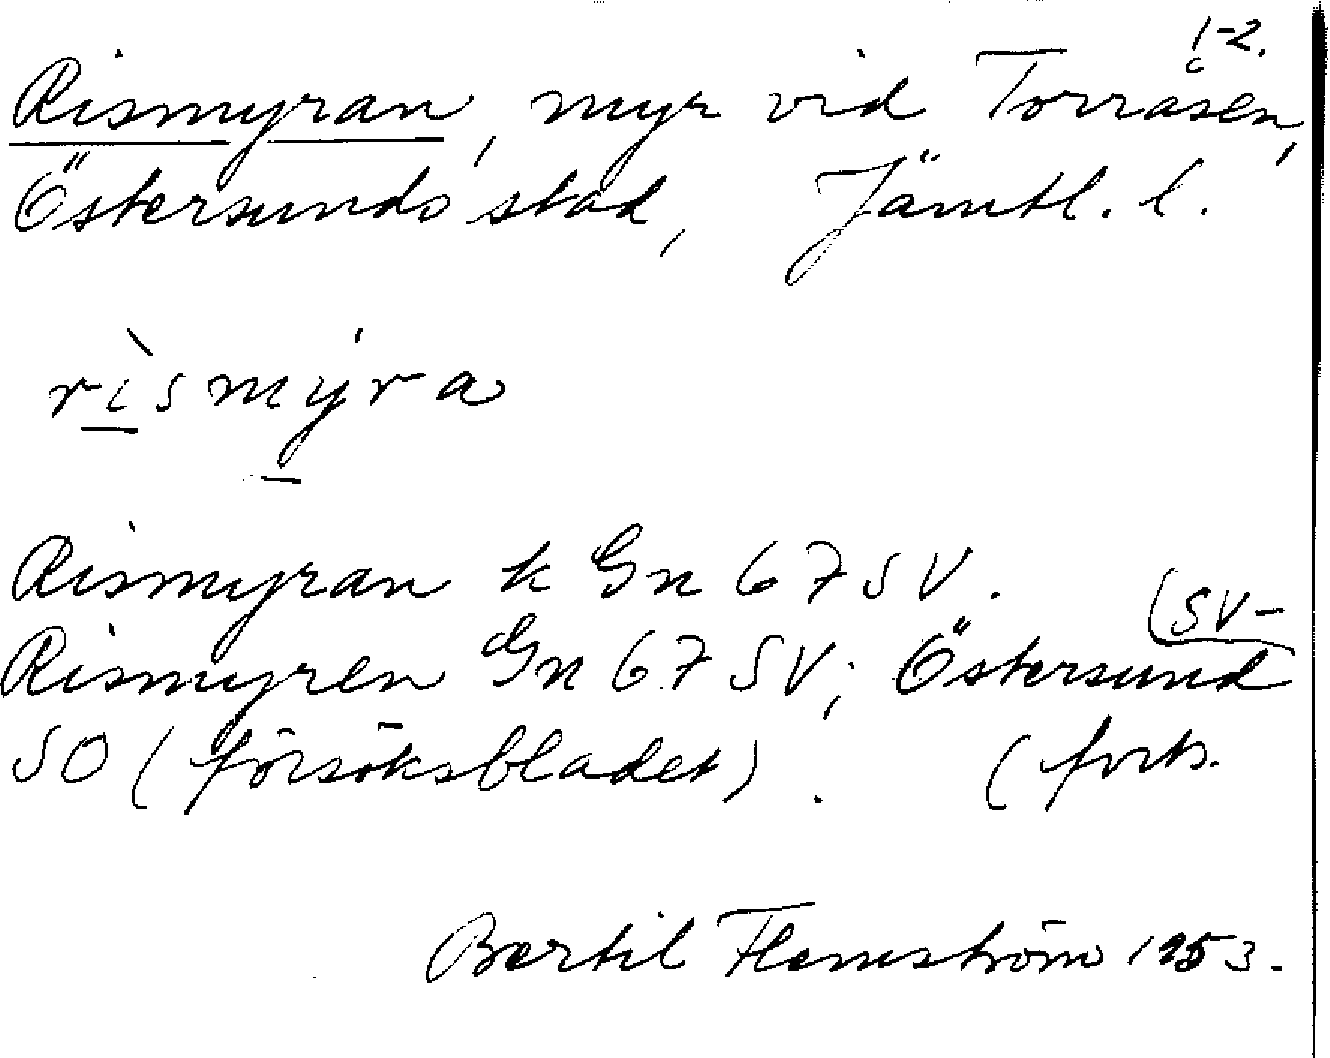 1-2.
Rismyran, myr vid Torråsen,
Östersunds stad, Jämtl. l.
rìsmýra
Rismyran k Gn 67 SV.
Rismyren Gn 67 SV; Östersund (SV-
SO (försöksbladet). (forts.
Bertil Flemström 1953.